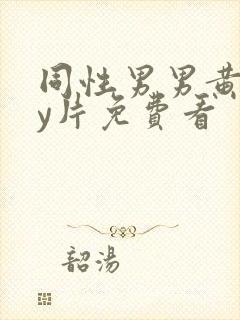 同性男男黄
y片免費看
韶湯